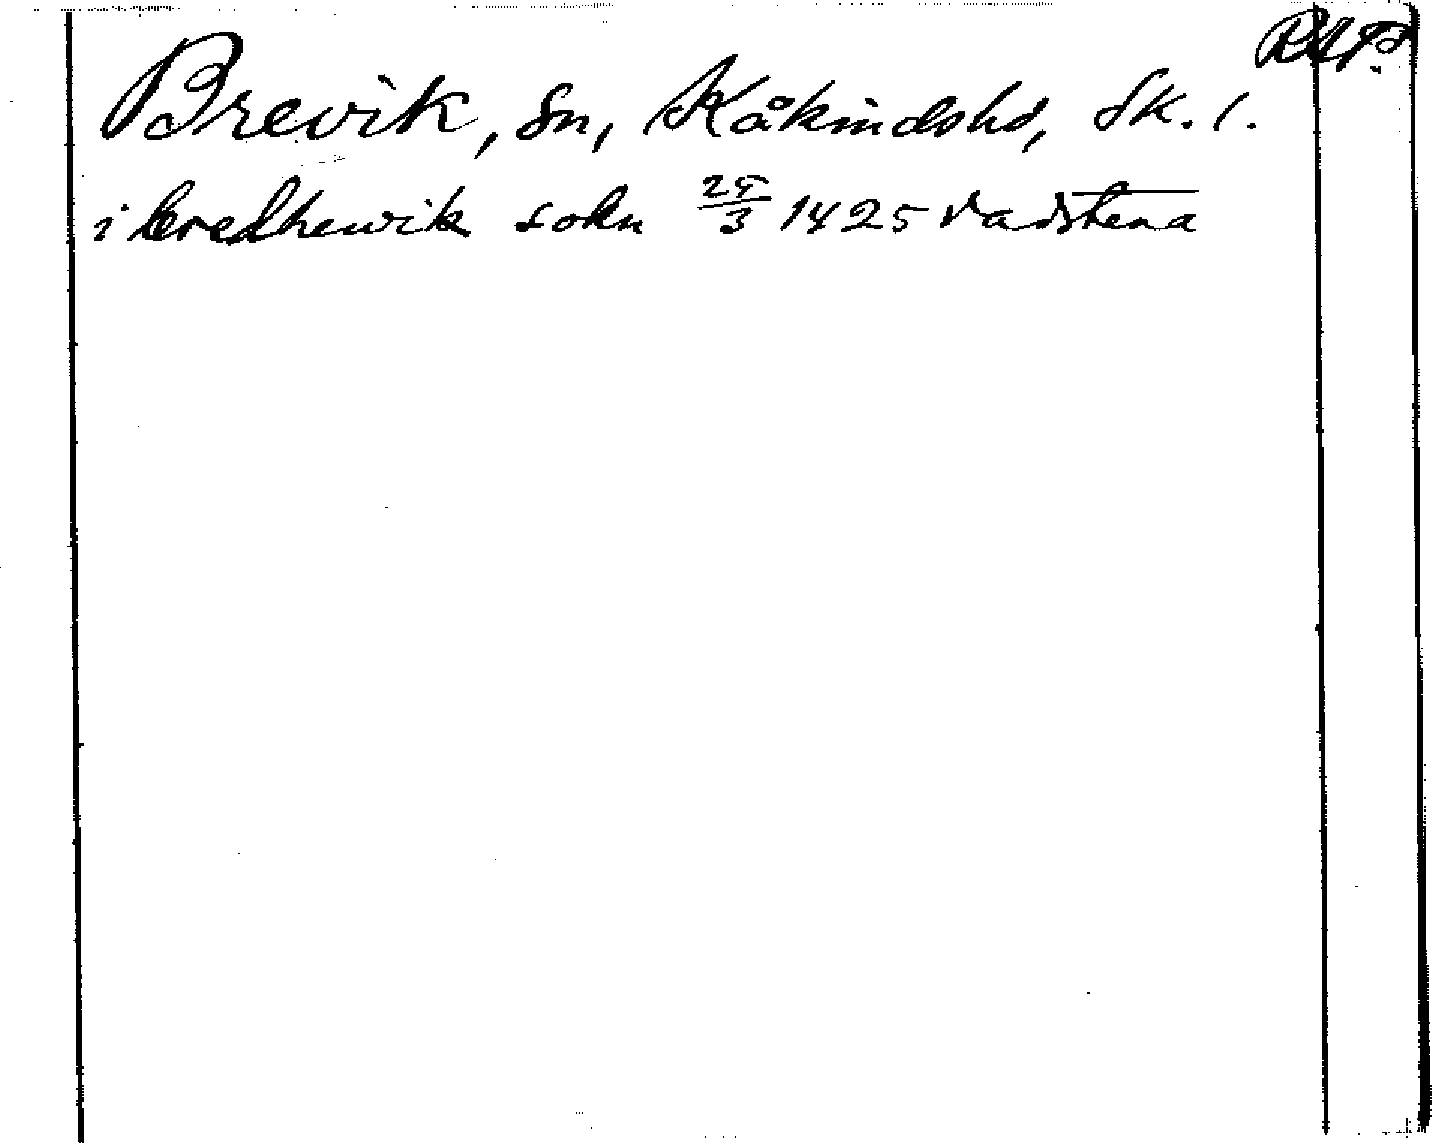 Brevik, Sn, Kåkindshd, Sk. l.
i bredhewik sokn 25/3 1425 Vadstena